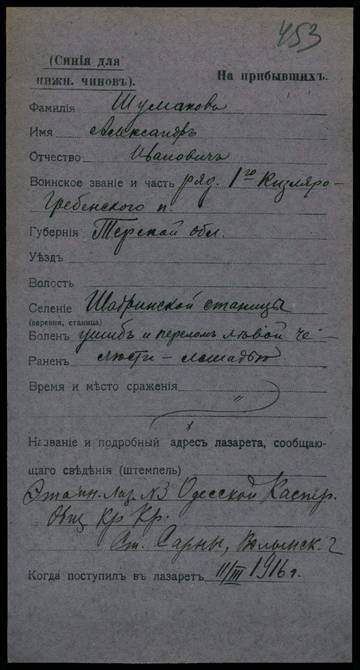 453
(Синія для
нижн. чиновъ).
На прибывшихъ.
Фамилія Шумаковъ
Имя Александръ
Отчество Ивановичъ
Воинское званіе и часть ряд. 1го Кизляро-
Гребенского п.
Губернія Терской обл.
Уѣздъ
Волость
Селеніе Шадринской станицы
(деревня, станица)
Боленъ ушибъ и переломъ лѣвой че-
Раненъ люсти – лошадью
Время и мѣсто сраженія "
Названіе и подробный адресъ лазарета, сообщаю-
щаго свѣдѣнія (штемпель)
Этапн. Лаз. № 3 Одесской Каспер.
Общ. Кр. Кр.
Ст. Сарны, Волынск. г.
Когда поступилъ въ лазаретъ 11/III 1916 г.